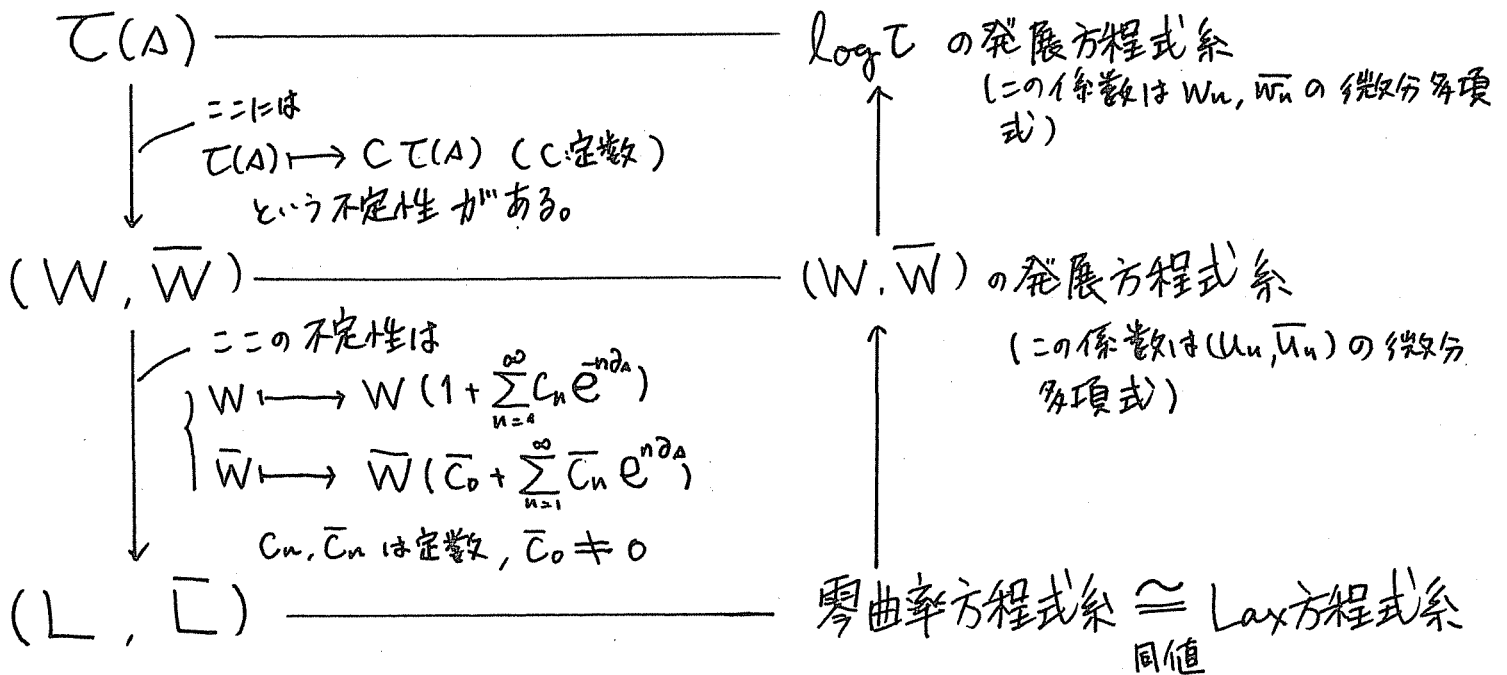 τ(Δ) logτ の発展方程式系
(この係数は Wn, W̅n の 微分多項
式)
ここには
τ(Δ) ↦ C τ(Δ) (C:定数)
という不定性がある。
(W, W̅) (W, W̅) の発展方程式系
(この係数は(un, u̅n) の 微分
多項式)
ここの不定性は
W ↦ W (1 + ∑_{n=1}^{∞} Cn e^{-n∂Δ})
W̅ ↦ W̅ (C̅0 + ∑_{n=1}^{∞} C̅n e^{n∂Δ})
Cn, C̅n は定数, C̅0 ≠ 0
(L, L̅) 零曲率方程式系 ≅ Lax方程式系
同値